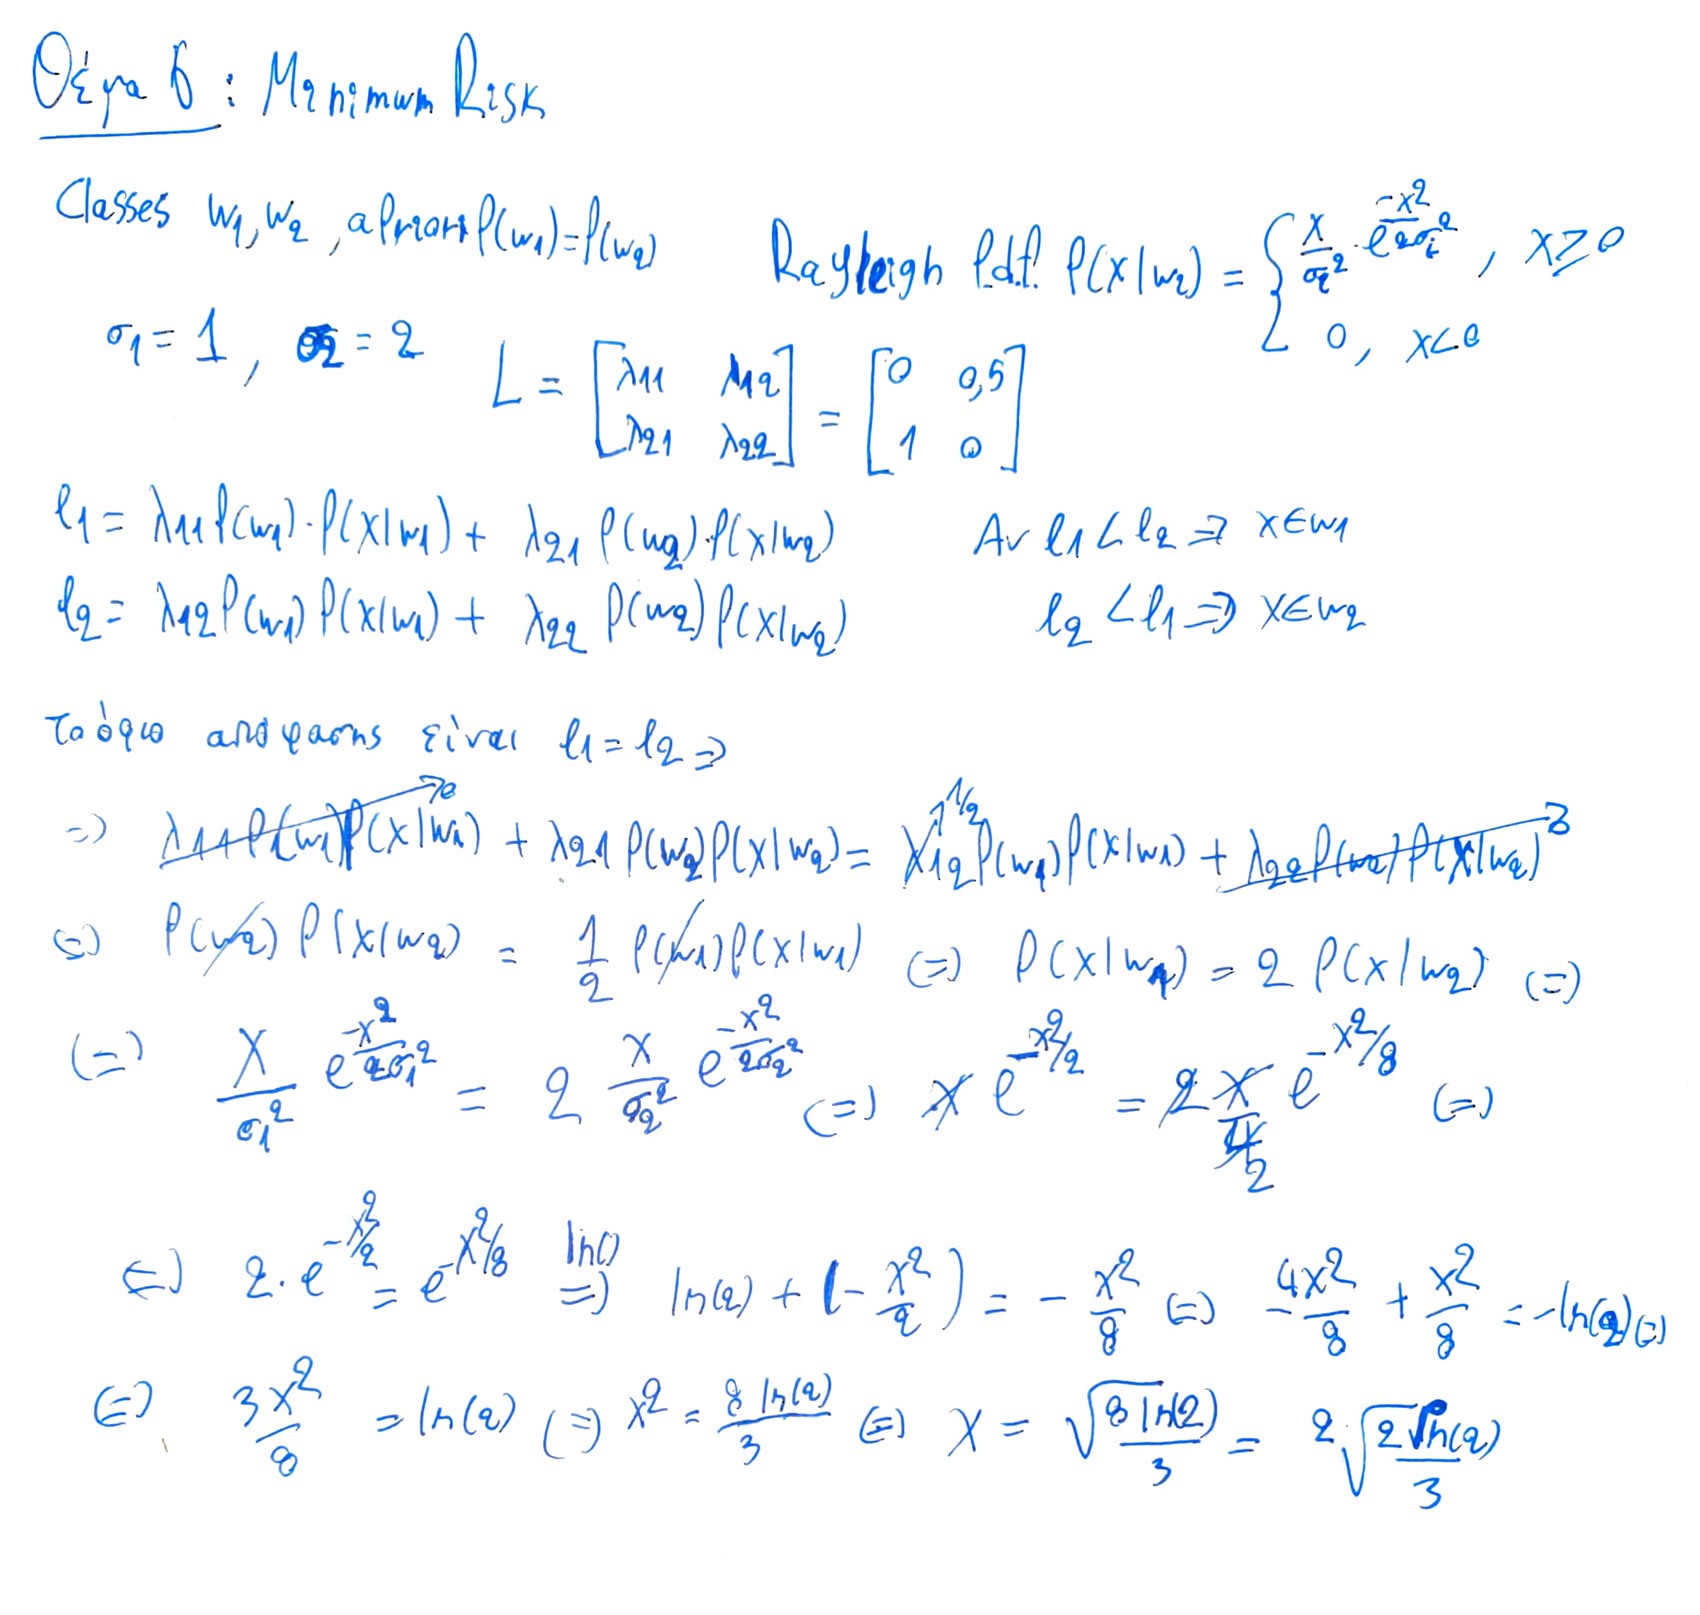 Θέμα 6 : Minimum Risk
Classes w1, w2 , a priori P(w1)=P(w2) Rayleigh P.d.f. P(x|wi) = { x/σi² · e^(-x²/2σi²) , x≥0
0, x<0
σ1 = 1 , σ2 = 2 L = [λ11 λ12 λ21 λ22] = [0 0,5 1 0]
l1 = λ11 P(w1)·P(x|w1) + λ21 P(w2)·P(x|w2) Αν l1 < l2 ⇒ x∈w1
l2 = λ12 P(w1) P(x|w1) + λ22 P(w2) P(x|w2) l2 < l1 ⇒ x∈w2
Το όριο απόφασης είναι l1 = l2 ⇒
⇒ λ11 P(w1) P(x|w1) →0 + λ21 P(w2) P(x|w2) = λ12 →1/2 P(w1) P(x|w1) + λ22 P(w2) P(x|w2) →0
⇔ P(w2) P(x|w2) = 1/2 P(w1) P(x|w1) ⇔ P(x|w1) = 2 P(x|w2) ⇔
⇔ x/σ1² e^(-x²/2σ1²) = 2 x/σ2² e^(-x²/2σ2²) ⇔ x e^(-x²/2) = 2 x/4 2 e^(-x²/8) ⇔
⇔ 2·e^(-x²/2) = e^(-x²/8) ln() ⇒ ln(2) + (-x²/2) = -x²/8 ⇔ -4x²/8 + x²/8 = -ln(2) ⇔
⇔ 3x²/8 = ln(2) ⇔ x² = 8 ln(2)/3 ⇔ x = √(8 ln(2)/3) = 2√(2 ln(2)/3)